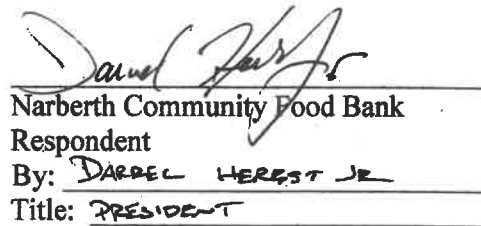 Narberth Community Food Bank
Respondent
By: DARREL HERBST JR
Title: PRESIDENT